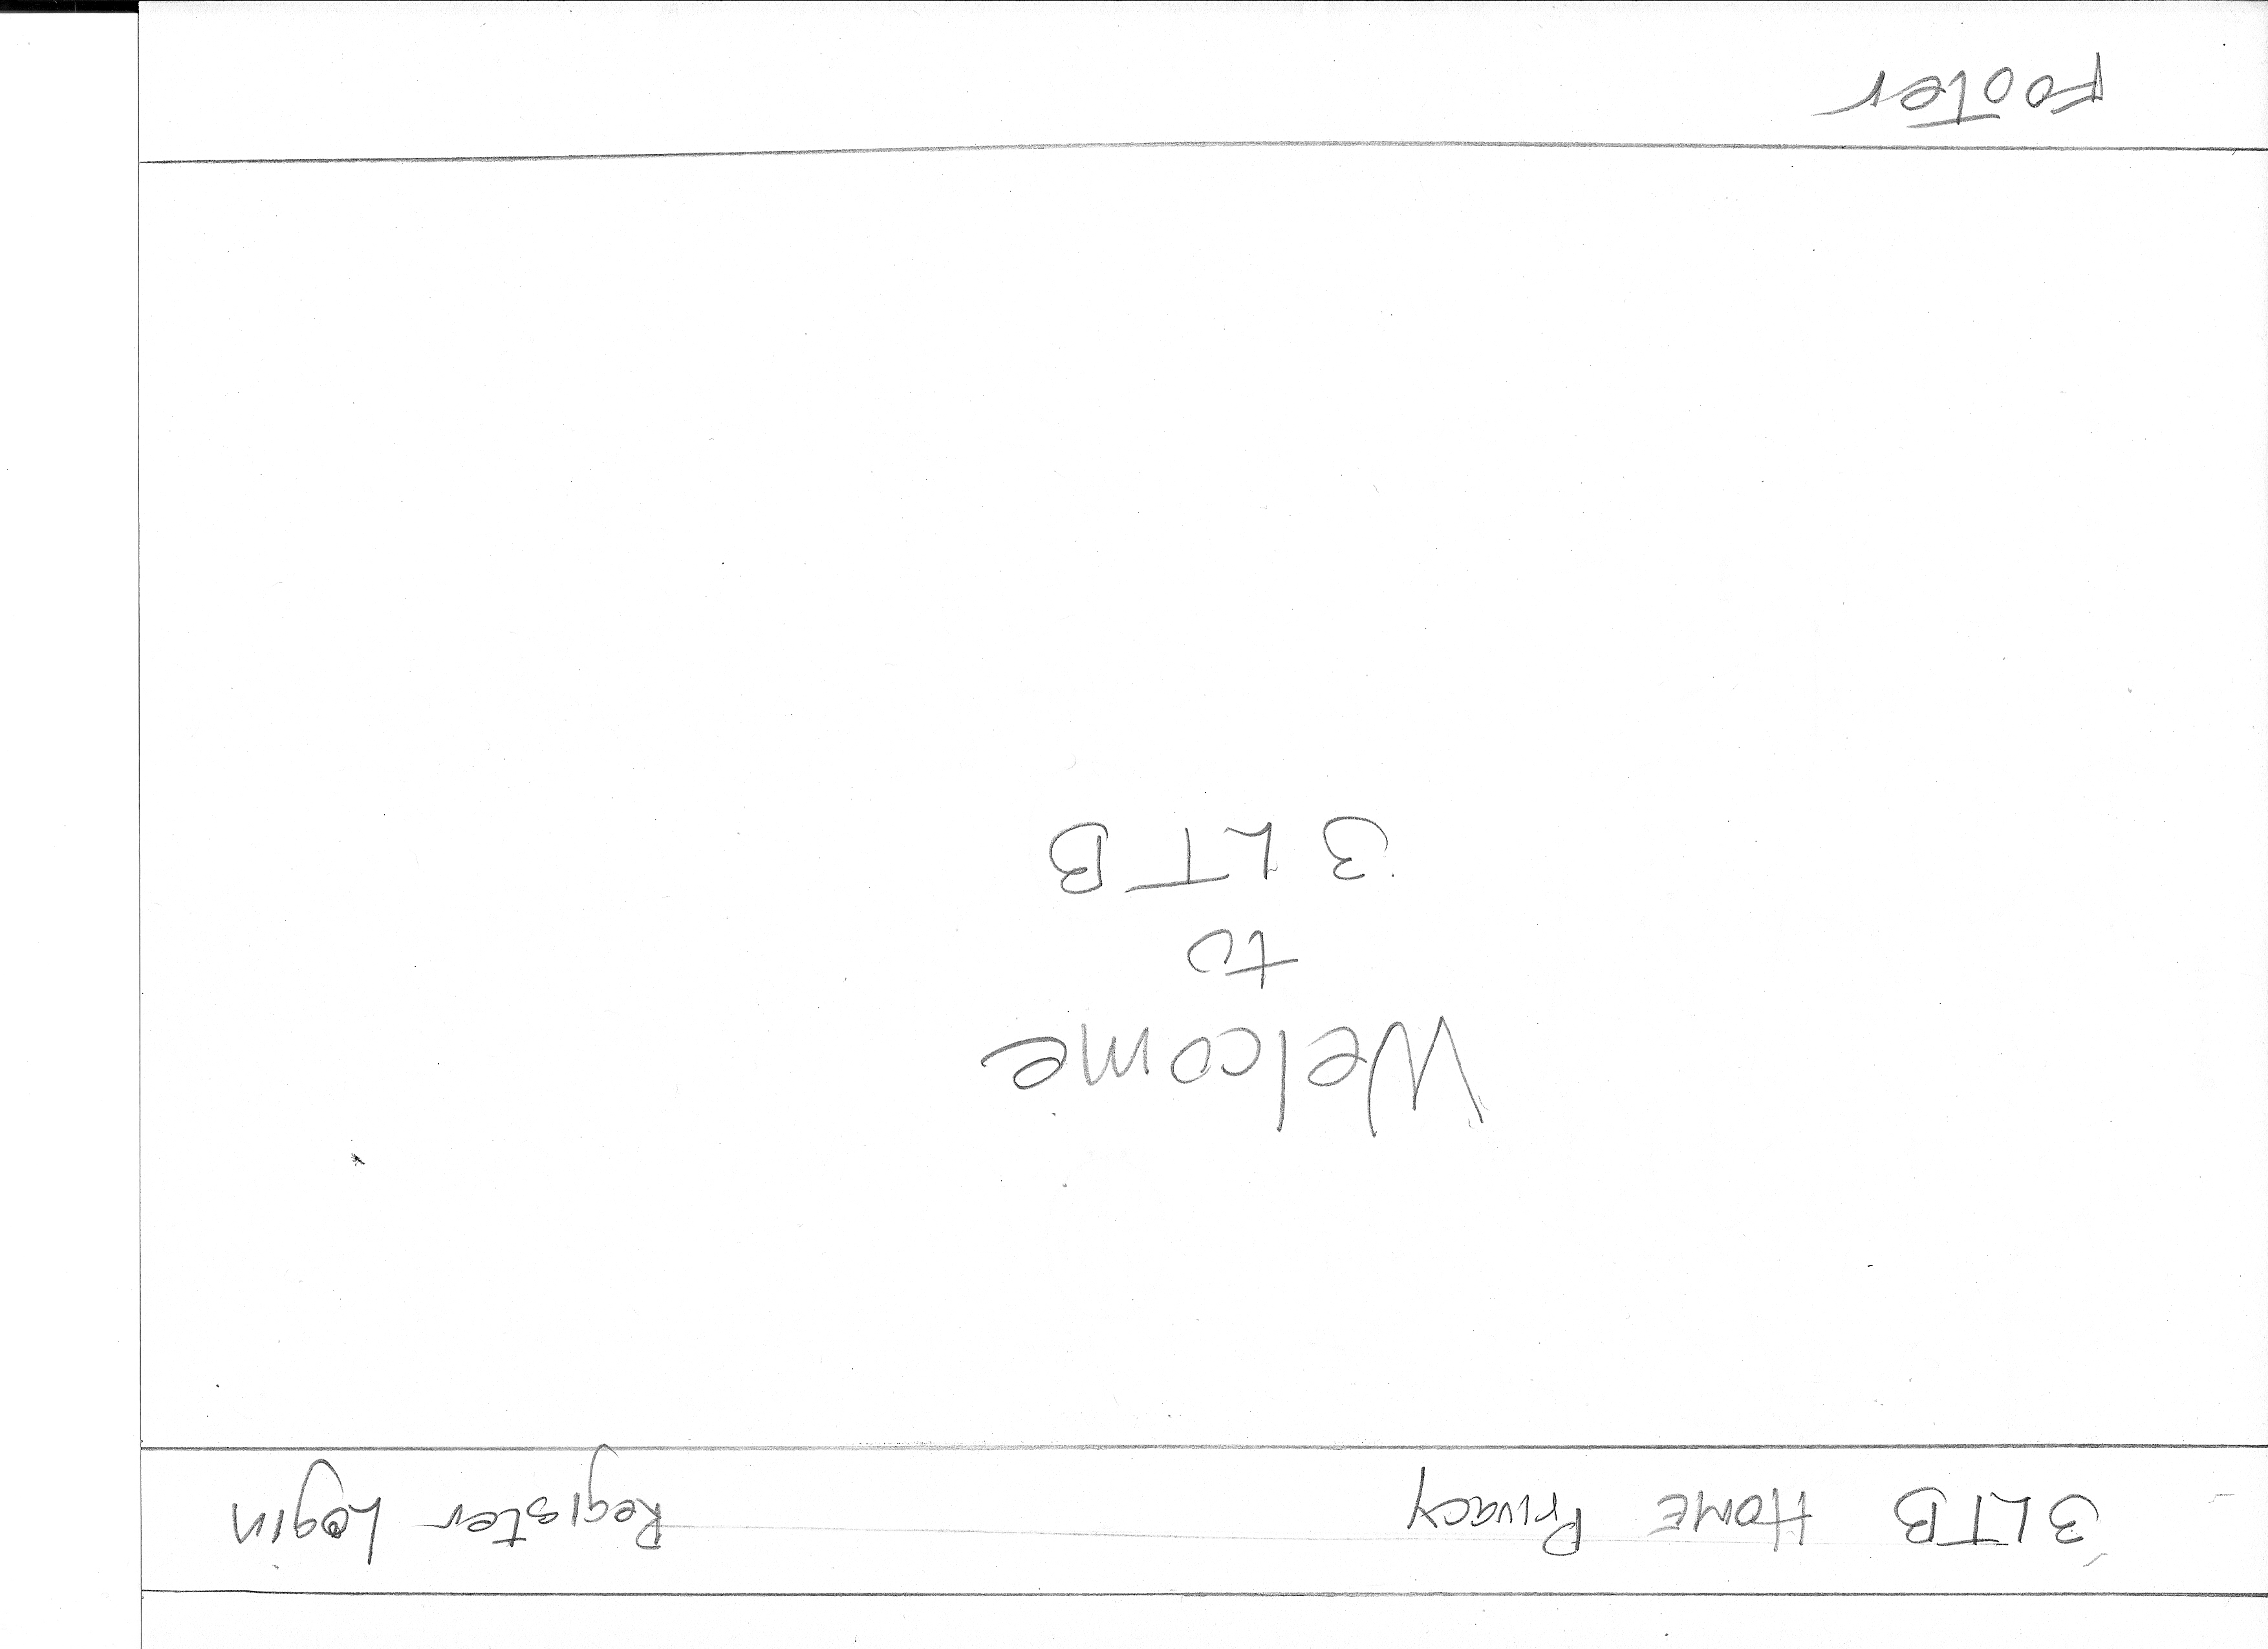 3LTB HOME Privacy Register Login
Welcome
to
3LTB
Footer